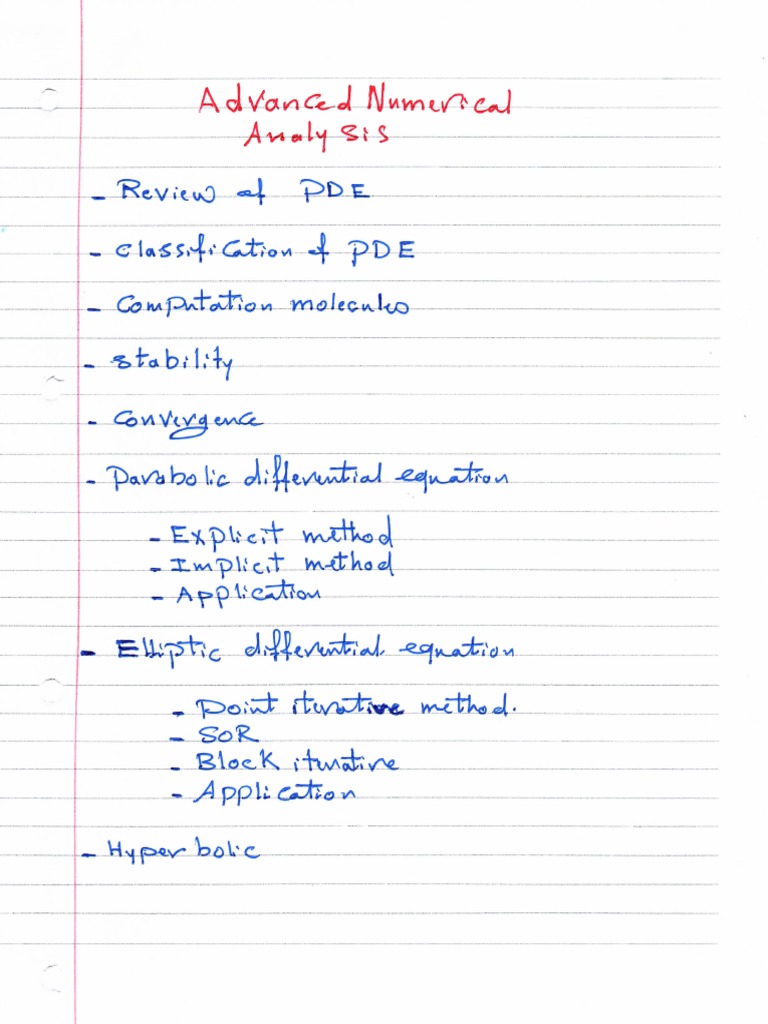 Advanced Numerical
Analysis
- Review of PDE
- Classification of PDE
- Computation molecules
- Stability
- Convergence
- Parabolic differential equation
- Explicit method
- Implicit method
- Application
- Elliptic differential equation
- Point iterative method.
- SOR
- Block iterative
- Application
- Hyperbolic